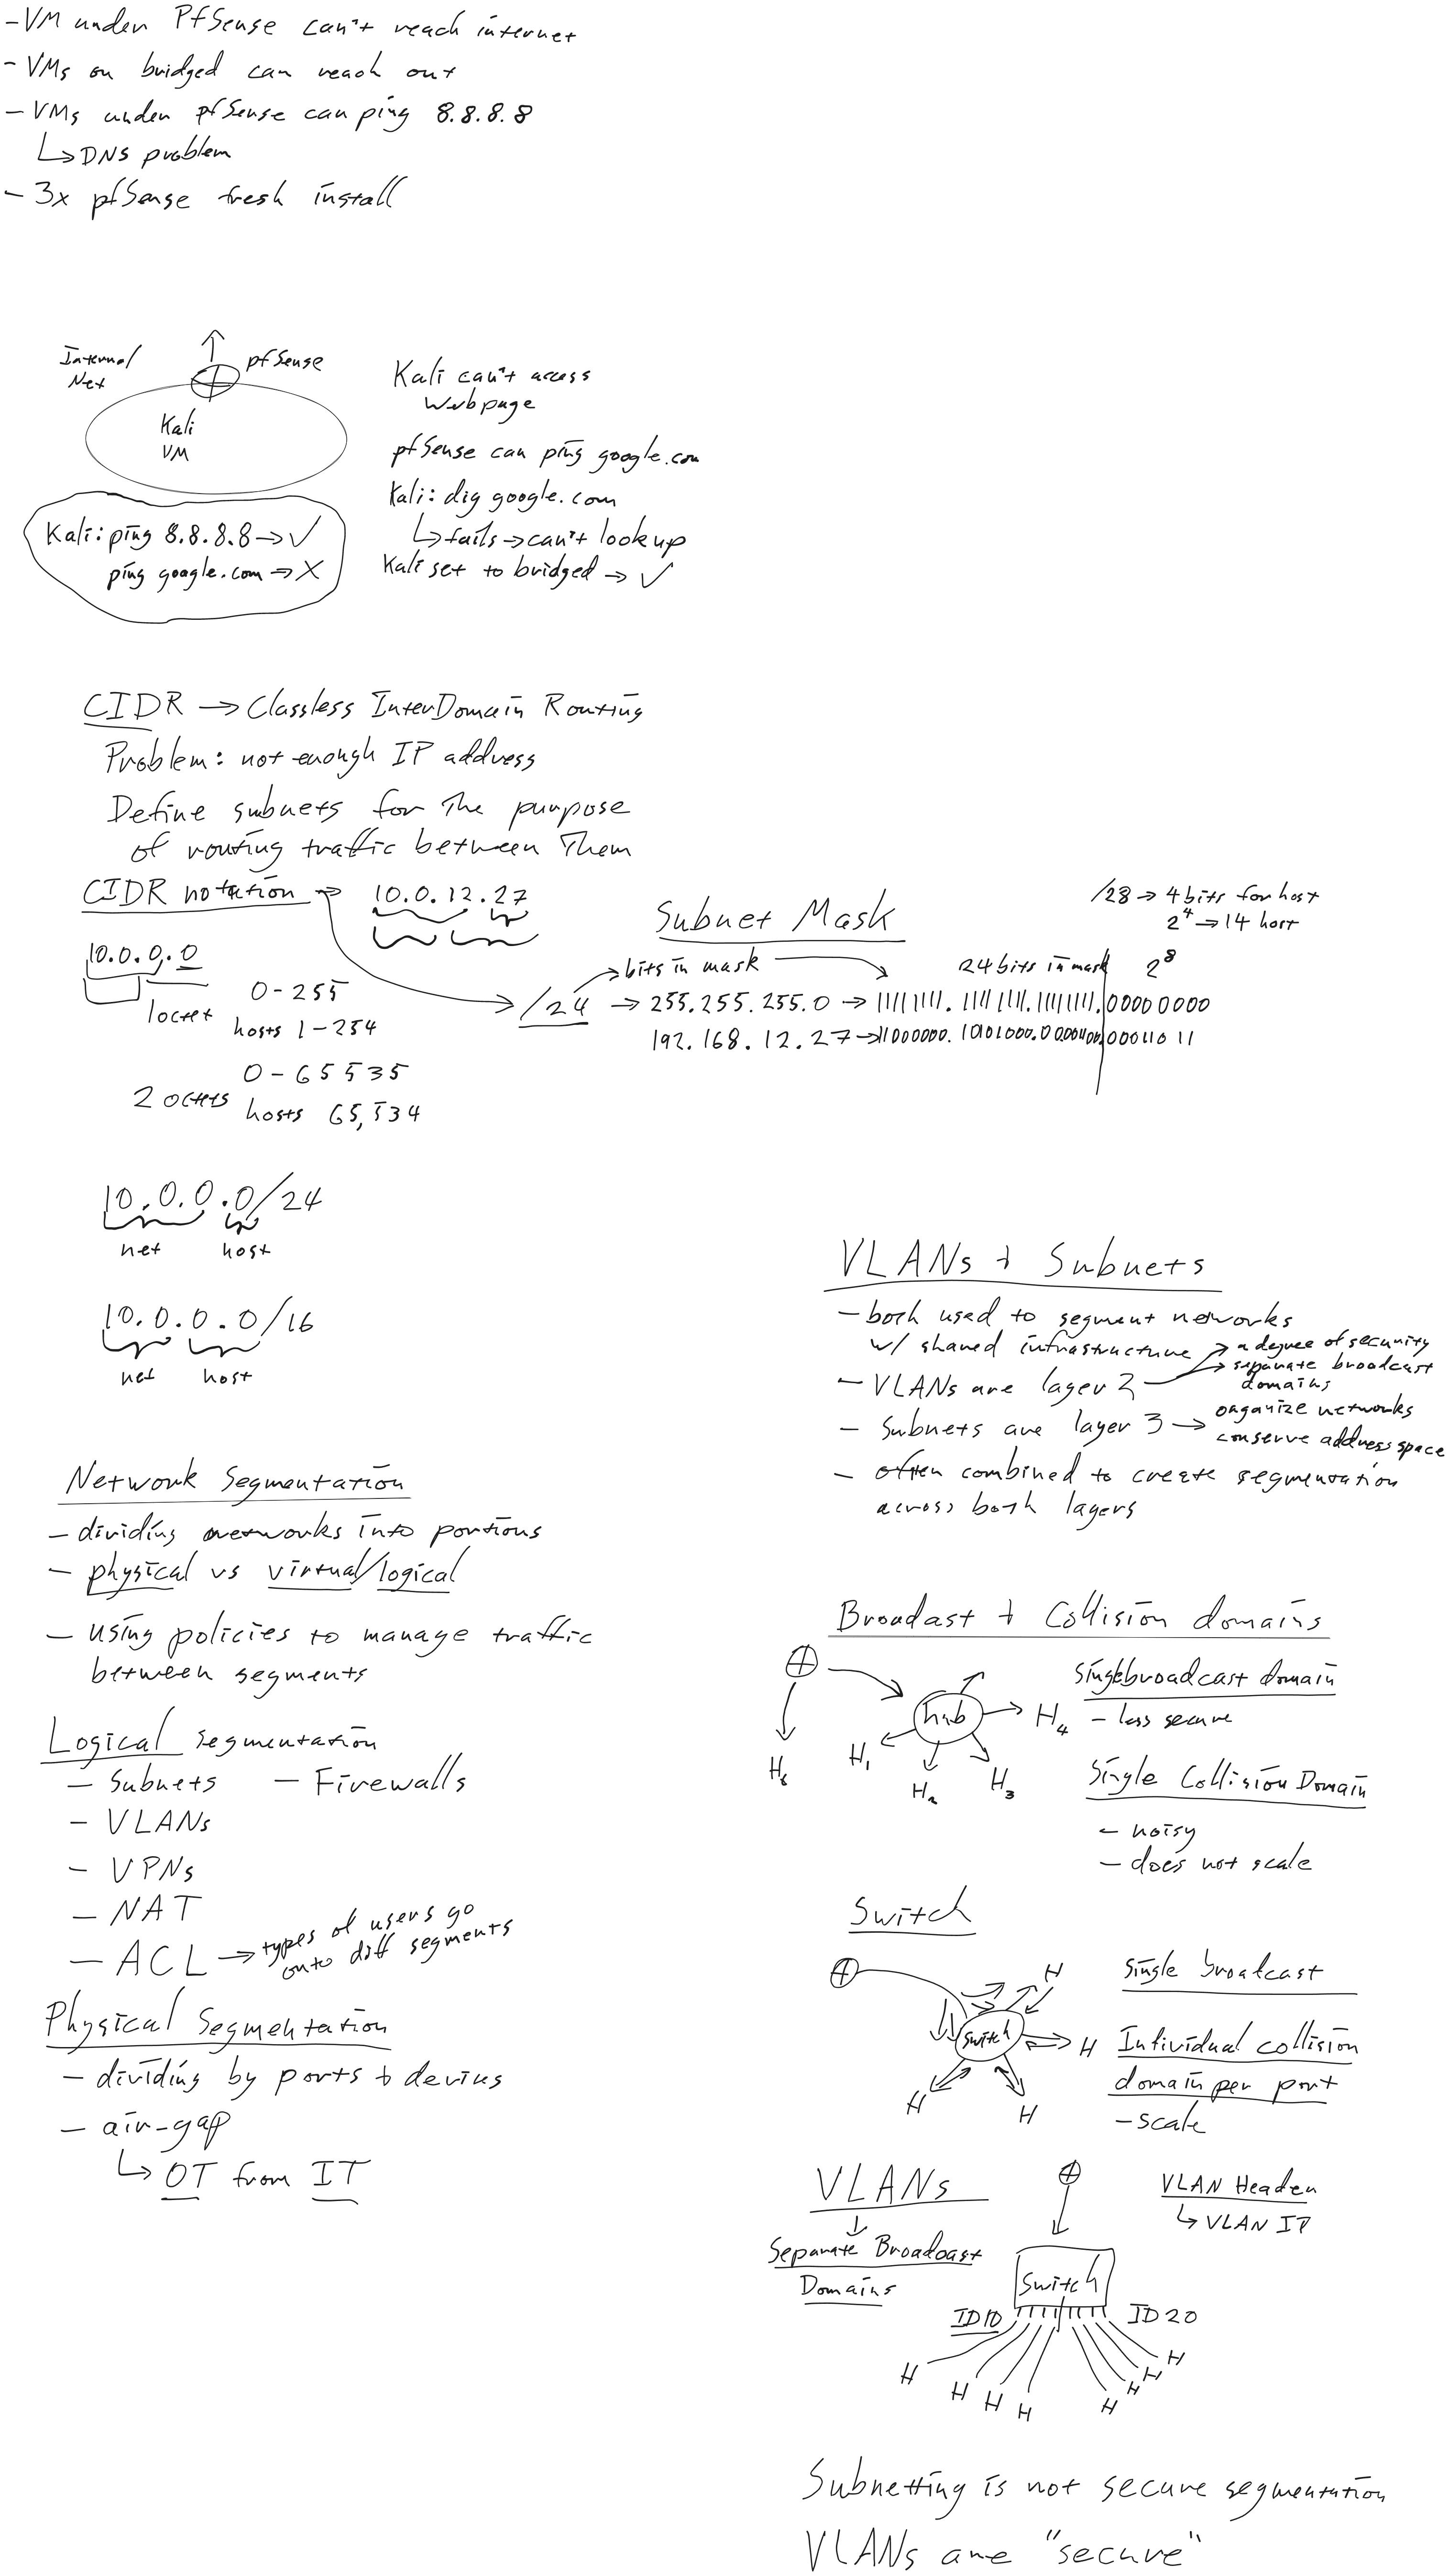 -VM under PfSense can't reach internet
- VMs on bridged can reach out
- VMs under pfSense can ping 8.8.8.8
↳ DNS problem
- 3x pfSense fresh install
Internal
Net
pfSense
Kali
VM
Kali: ping 8.8.8.8 → ✓
ping google.com → X
Kali can't access
Webpage
pfSense can ping google.com
Kali: dig google.com
↳ fails → can't lookup
Kali set to bridged → ✓
CIDR → Classless InterDomain Routing
Problem: not enough IP address
Define subnets for the purpose
of routing traffic between them
CIDR notation → 10.0.12.27
10.0.0.0
1 octet
0-255
hosts 1-254
2 octets
0-65535
hosts 65,534
Subnet Mask
bits in mask
24 bits in mask 2^8
/24 → 255.255.255.0 → 11111111.11111111.11111111.00000000
192.168.12.27 → 11000000.10101000.00001100.00011011
/28 → 4 bits for host
2^4 → 14 host
10.0.0.0/24
net host
10.0.0.0/16
net host
Network Segmentation
- dividing networks into portions
- physical vs virtual/logical
- using policies to manage traffic
between segments
Logical Segmentation
- Subnets - Firewalls
- VLANs
- VPNs
- NAT
- ACL → types of users go
onto diff segments
Physical Segmentation
- dividing by ports + devices
- air-gap
↳ OT from IT
VLANs + Subnets
- both used to segment networks
w/ shared infrastructure
- VLANs are layer 2 → a degree of security
→ separate broadcast
domains
- Subnets are layer 3 → organize networks
conserve address space
- often combined to create segmentation
across both layers
Broadast + Collision domains
hub
H1
H2
H3
H4
Single broadcast domain
- less secure
Single Collision Domain
- noisy
- does not scale
Switch
Switch
H
H
H
H
Single broadcast
Individual collision
domain per port
- scale
VLANs
Separate Broadcast
Domains
VLAN Header
↳ VLAN ID
Switch
ID10 ID20
H H H H H H H H
Subnetting is not secure segmentation
VLANs are "secure"